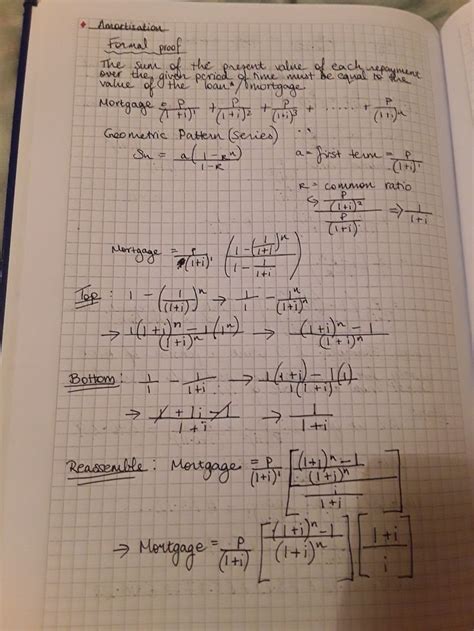 Amortisation
Formal proof
The sum of the present value of each repayment
over the given period of time must be equal to the
value of the loan*/mortgage
Mortgage = P/(1+i)¹ + P/(1+i)² + P/(1+i)³ + ........ + P/(1+i)ⁿ
Geometric Pattern (series) ∴
Sn = a(1-Rⁿ/1-R) a = first term = P/(1+i)¹
R = common ratio
↳ P/(1+i)² / P/(1+i)¹ ⇒ 1/1+i
Mortgage = P/(1+i)¹ (1-(1/1+i)ⁿ / 1-1/1+i)
Top: 1 - (1/(1+i))ⁿ → 1/1 - 1ⁿ/(1+i)ⁿ
→ 1(1+i)ⁿ-1(1ⁿ)/(1+i)ⁿ → (1+i)ⁿ-1/(1+i)ⁿ
Bottom: 1/1 - 1/1+i → 1(1+i)-1(1)/1(1+i)
→ 1+1i-1/1+i → i/1+i
Reassemble: Mortgage = P/(1+i)¹ [(1+i)ⁿ-1/(1+i)ⁿ / i/1+i]
→ Mortgage = P/(1+i) [(1+i)ⁿ-1/(1+i)ⁿ] [1+i/i]